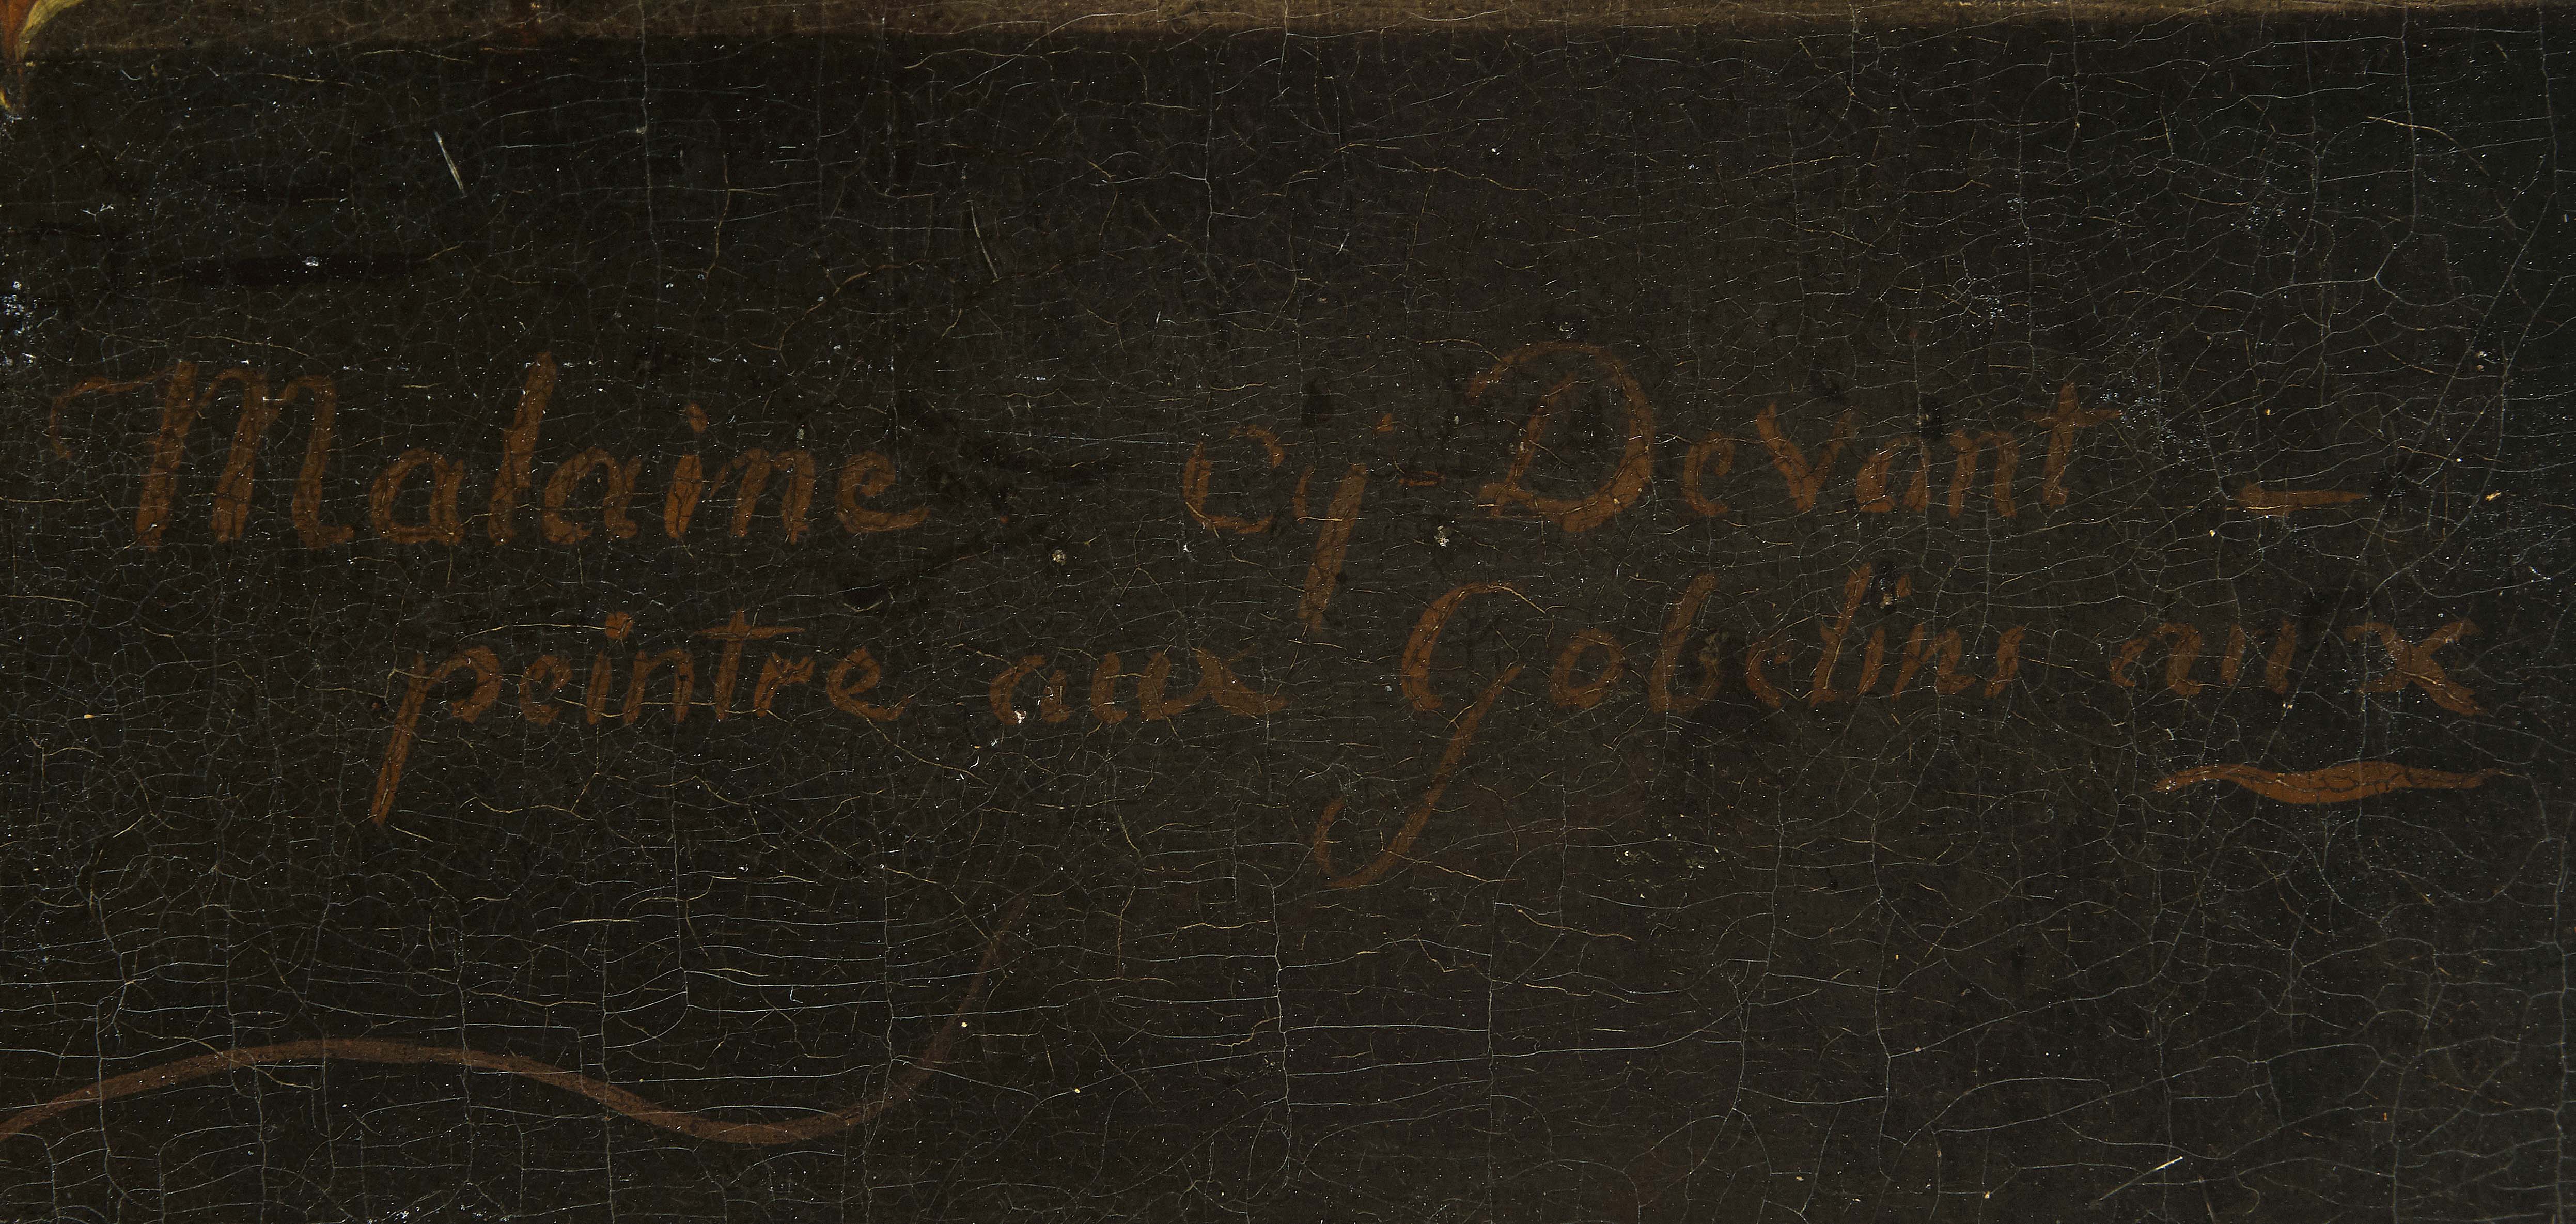 Malaine cy-Devant –
peintre aux Gobelins aux